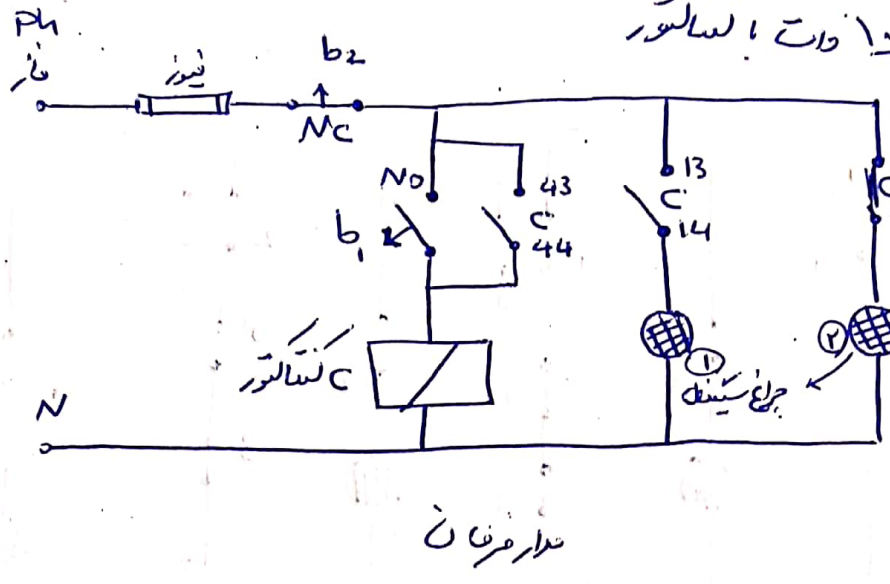 Ph
فاز
فیوز
b2
NC
وات با کنتاکتور
NO
43
13
C
C
C
b1
44
14
C کنتاکتور
۱
۲
چراغ سیگنال
N
مدار فرمان